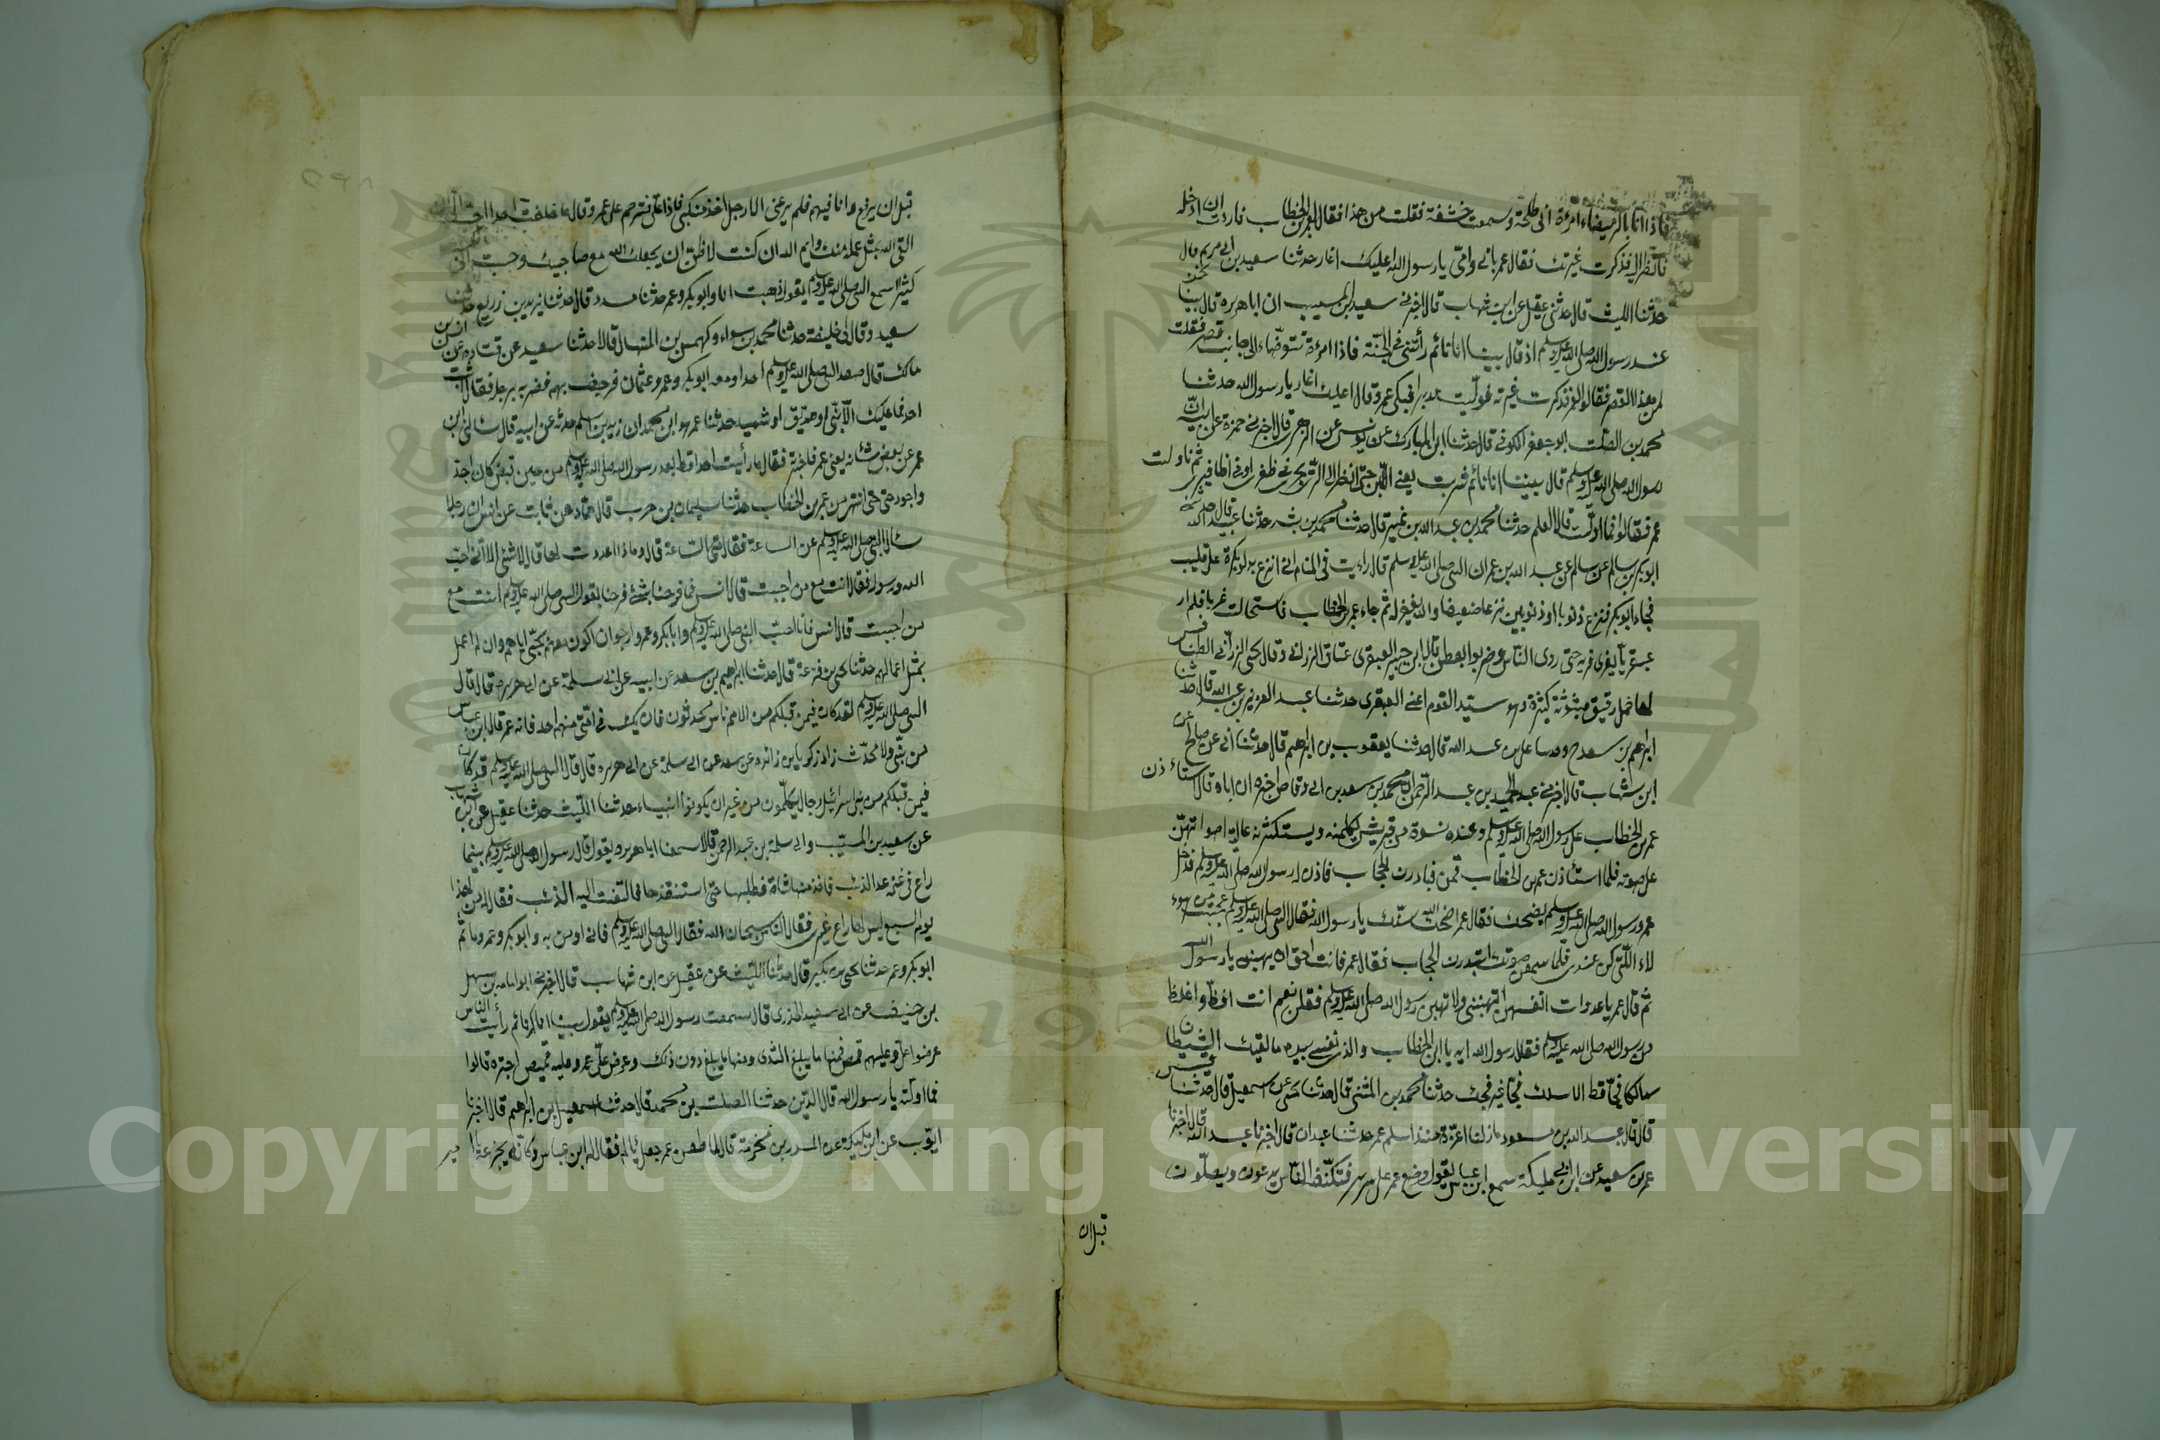 فاذا انا بالرميصاء امرءة ابى طلحة وسمعت خشفة فقلت من هذا فقال لعمر بن الخطاب فاردت ان ادخله
فانظر اليه فذكرت غيرتك فقال عمر بابى وامى يا رسول الله اعليك اغار حدثنا سعيد بن ابى مريم قال
حدثنا الليث قال حدثنى عقيل عن ابن شهاب قال اخبرنى سعيد بن المسيب ان ابا هريرة قال بينا نحن
عند رسول الله صلى الله عليه وسلم اذ قال بينا انا نائم رأيتنى فى الجنة فاذا امرءة تتوضاء الى جانب قصر فقلت
لمن هذا القصر فقالوا لعمر فذكرت غيرته فوليت مدبرا فبكى عمر وقال اعليك اغار يا رسول الله حدثنا
محمد بن الصلت ابو جعفر الكوفى قال حدثنا ابن المبارك عن يونس عن الزهرى قال اخبرنى حمزة عن ابيه ان
رسول الله صلى الله عليه وسلم قال بينا انا نائم شربت يعنى اللبن حتى انظر الى الرى يجرى فى ظفرى او فى اظافيرى ثم ناولت
عمر فقالوا فما اولت قال العلم حدثنا محمد بن عبد الله بن نمير قال حدثنا محمد بن بشر حدثنا عبيد الله قال حدثنى
ابو بكر بن سالم عن سالم عن عبد الله بن عمر ان النبى صلى الله عليه وسلم قال رايت فى المنام انى انزع بدلو بكرة على قليب
فجاء ابو بكر فنزع ذنوبا او ذنوبين نزعا ضعيفا والله يغفر له ثم جاء عمر بن الخطاب فاستحالت غربا فلم ار
عبقريا يفرى فريه حتى روى الناس وضربوا بعطن قال ابن جبير العبقرى عتاق الزرابى وقال يحيى الزرابى الطنافس
لها خمل رقيق مبثوثة كثيرة وهو سيد القوم اعنى العبقرى حدثنا عبد العزيز بن عبد الله قال حدثنا
ابراهيم بن سعد ح وحدثنا على بن عبد الله قال حدثنا يعقوب بن ابراهيم قال حدثنا ابى عن صالح عن
ابن شهاب قال اخبرنى عبد الحميد بن عبد الرحمن ان محمد بن سعد بن ابى وقاص اخبره ان اباه قال استاءذن
عمر بن الخطاب على رسول الله صلى الله عليه وسلم وعنده نسوة من قريش يكلمنه ويستكثرنه عالية اصواتهن
على صوته فلما استأذن عمر بن الخطاب قمن فبادرن الحجاب فاذن له رسول الله صلى الله عليه وسلم فدخل
عمر ورسول الله صلى الله عليه وسلم يضحك فقال عمر اضحك الله سنك يا رسول الله فقال النبى صلى الله عليه وسلم عجبت من هوء
لاء اللاتى كن عندى فلما سمعن صوتك ابتدرن الحجاب فقال عمر فانت احق ان يهبن يا رسول الله
ثم قال عمر يا عدوات انفسهن اتهبننى ولا تهبن رسول الله صلى الله عليه وسلم فقلن نعم انت افظ واغلظ
من رسول الله صلى الله عليه وسلم فقال رسول الله ايه يا ابن الخطاب والذى نفسى بيده ما لقيك الشيطان
سالكا فجا قط الا سلك فجا غير فجك حدثنا محمد بن المثنى قال حدثنا يحيى عن اسمعيل قال حدثنا قيس
قال قال عبد الله بن مسعود ما زلنا اعزة منذ اسلم عمر حدثنا عبدان قال اخبرنا عبد الله قال اخبرنا
عمر بن سعيد عن ابن ابى مليكة سمع ابن عباس يقول وضع عمر على سريره فتكنفه الناس يدعون ويصلون
قبل ان
قبل ان يرفع وانا فيهم فلم يرعنى الا رجل اخذ منكبى فاذا على فترحم على عمر وقال ما خلفت احدا احب الى ان
القى الله بمثل عمله منك وايم الله ان كنت لاظن ان يجعلك الله مع صاحبيك وحسبت انى
كثيرا اسمع النبى صلى الله عليه وسلم يقول ذهبت انا وابو بكر وعمر حدثنا مسدد قال حدثنا يزيد بن زريع حدثنا
سعيد وقال لى خليفة حدثنا محمد بن سواء وكهمس بن المنهال قالا حدثنا سعيد عن قتادة عن انس بن
مالك قال صعد النبى صلى الله عليه وسلم احدا ومعه ابو بكر وعمر وعثمان فرجف بهم فضربه برجله فقال اثبت
احد فما عليك الا نبى او صديق او شهيد حدثنا عمر هو ابن محمد ان زيد بن اسلم حدثه عن ابيه قال سألنى ابن
عمر عن بعض شانه يعنى عمر فاخبرته فقال ما رأيت احدا قط بعد رسول الله صلى الله عليه وسلم من حين قبض كان اجد
واجود حتى انتهى من عمر بن الخطاب حدثنا سليمان بن حرب قال حماد عن ثابت عن انس ان رجلا
سأل النبى صلى الله عليه وسلم عن الساعة فقال متى الساعة قال وماذا اعددت لها قال لا شئ الا انى احب
الله ورسوله فقال انت مع من احببت قال انس فما فرحنا بشئ فرحنا بقول النبى صلى الله عليه وسلم انت مع
من احببت قال انس فانا احب النبى صلى الله عليه وسلم وابا بكر وعمر وارجو ان اكون معهم بحبى اياهم وان لم اعمل
بمثل اعمالهم حدثنا يحيى بن قزعة قال حدثنا ابراهيم بن سعد عن ابيه عن ابى سلمة عن ابى هريرة قال قال
النبى صلى الله عليه وسلم لقد كان فيمن قبلكم من الامم ناس محدثون فان يك فى امتى منهم احد فانه عمر قال ابن عباس
من نبى ولا محدث زاد زكريا بن زائده عن سعد عن ابى سلمة عن ابى هريرة قال قال النبى صلى الله عليه وسلم قد كان
فيمن قبلكم من بنى اسرائيل رجال يكلمون من غير ان يكونوا انبياء حدثنا الليث حدثنا عقيل عن ابن شهاب
عن سعيد بن المسيب وابى سلمة بن عبد الرحمن قالا سمعنا ابا هريرة يقول قال رسول الله صلى الله عليه وسلم بينما
راع فى غنمه عدا الذئب فاخذ منها شاة فطلبها حتى استنقذها فالتفت اليه الذئب فقال له من لهذا
يوم السبع ليس لها راع غيرى فقال الناس سبحان الله فقال النبى صلى الله عليه وسلم فانى اومن به وابو بكر وعمر وما ثم
ابو بكر وعمر حدثنا يحيى بن بكير قال حدثنا الليث عن عقيل عن ابن شهاب قال اخبرنى ابو امامة بن سهل
بن حنيف عن ابى سعيد الخدرى قال سمعت رسول الله صلى الله عليه وسلم يقول بينا انا نائم رأيت الناس
عرضوا على وعليهم قمص فمنها ما يبلغ الثدى ومنها ما يبلغ دون ذلك وعرض على عمر وعليه قميص اجتره قالوا
فما اولته يا رسول الله قال الدين حدثنا الصلت بن محمد قال حدثنا اسمعيل بن ابراهيم قال اخبرنا
ايوب عن ابن ابى مليكة عن المسور بن مخرمة قال لما طعن عمر جعل يألم فقال له ابن عباس وكانه يجزعه يا امير
Copyright © King Saud University
1957